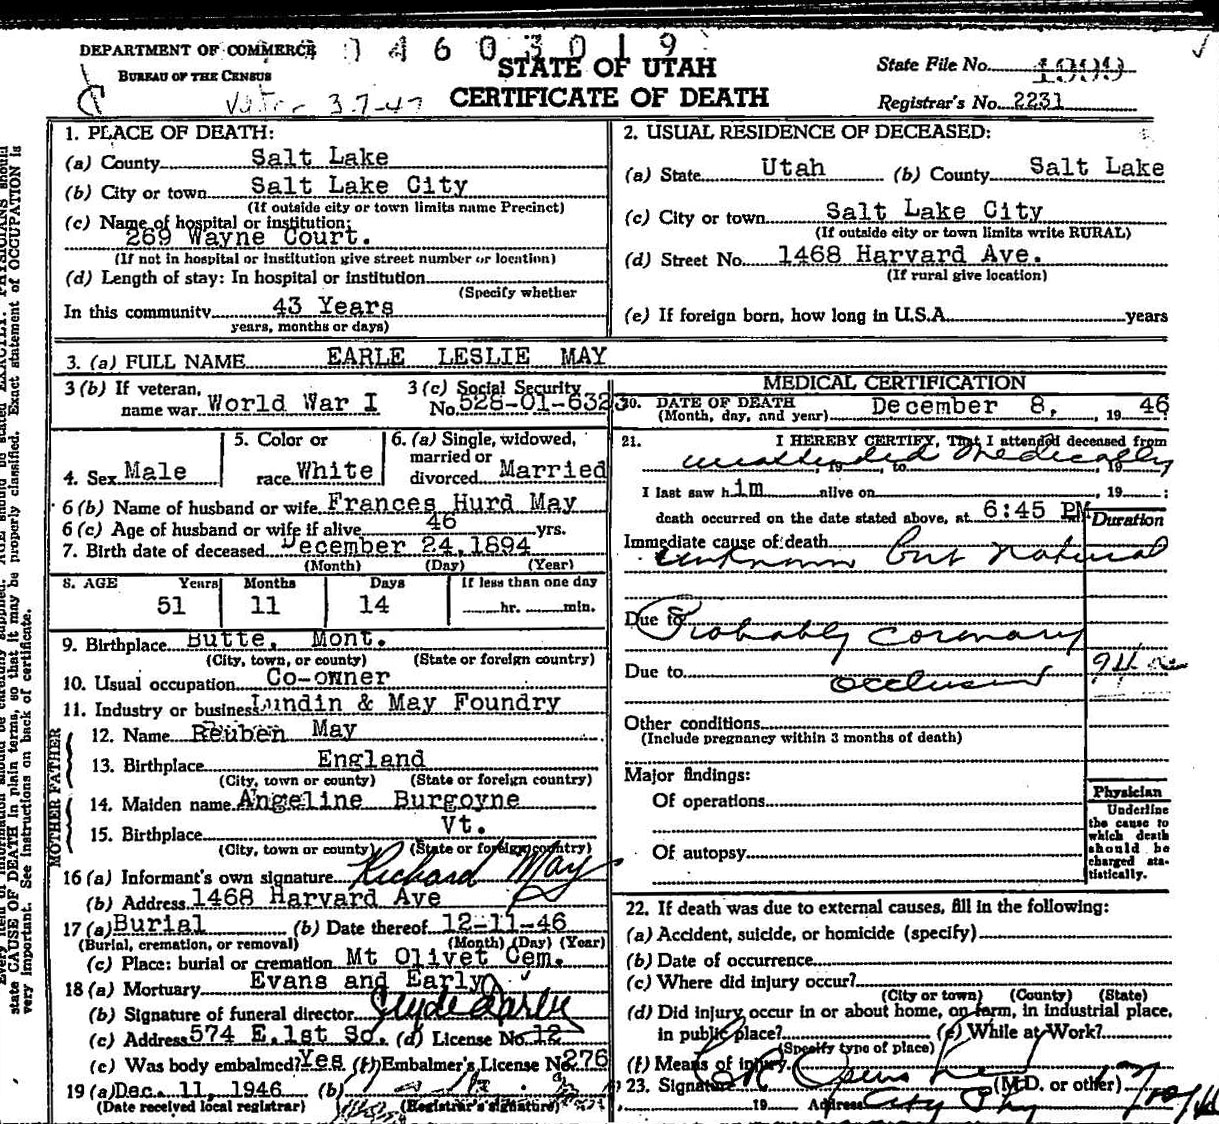 DEPARTMENT OF COMMERCE
BUREAU OF THE CENSUS
STATE OF UTAH
CERTIFICATE OF DEATH
3-7-47
State File No.
Registrar's No. 2231
1. PLACE OF DEATH:
(a) County Salt Lake
(b) City or town Salt Lake City
(If outside city or town limits name Precinct)
(c) Name of hospital or institution:
269 Wayne Court.
(If not in hospital or institution give street number or location)
(d) Length of stay: In hospital or institution
(Specify whether
In this community 43 Years
years, months or days)
2. USUAL RESIDENCE OF DECEASED:
(a) State Utah (b) County Salt Lake
(c) City or town Salt Lake City
(If outside city or town limits write RURAL)
(d) Street No. 1468 Harvard Ave.
(If rural give location)
(e) If foreign born, how long in U.S.A. years
3. (a) FULL NAME EARLE LESLIE MAY
3 (b) If veteran,
name war World War I
3 (c) Social Security
No. 528-01-6323
4. Sex Male
5. Color or
race White
6. (a) Single, widowed,
married or
divorced Married
6 (b) Name of husband or wife Frances Hurd May
6 (c) Age of husband or wife if alive 46 yrs.
7. Birth date of deceased December 24, 1894
(Month) (Day) (Year)
8. AGE Years Months Days If less than one day
51 11 14 hr. min.
9. Birthplace Butte, Mont.
(City, town, or county) (State or foreign country)
10. Usual occupation Co-owner
11. Industry or business Lundin & May Foundry
FATHER
12. Name Reuben May
13. Birthplace England
(City, town or county) (State or foreign country)
MOTHER
14. Maiden name Angeline Burgoyne
15. Birthplace Vt.
(City, town or county) (State or foreign country)
16 (a) Informant's own signature Richard May
(b) Address 1468 Harvard Ave
17 (a) Burial (b) Date thereof 12-11-46
(Burial, cremation, or removal) (Month) (Day) (Year)
(c) Place: burial or cremation Mt Olivet Cem.
18 (a) Mortuary Evans and Early
(b) Signature of funeral director Clyde Early
(c) Address 574 E. 1st So. (d) License No. 12
(e) Was body embalmed? Yes (f) Embalmer's License No. 276
19 (a) Dec. 11, 1946 (b)
(Date received local registrar) (Registrar's signature)
MEDICAL CERTIFICATION
20. DATE OF DEATH
(Month, day, and year) December 8, 19 46
21. I HEREBY CERTIFY, That I attended deceased from
unattended medically , 19 , to , 19
I last saw h im alive on , 19 ;
death occurred on the date stated above, at 6:45 PM
Duration
Immediate cause of death
unknown but natural
Due to Probably coronary
Due to occlusion
Other conditions
(Include pregnancy within 3 months of death)
Major findings:
Of operations
Of autopsy
Physician
Underline
the cause to
which death
should be
charged sta-
tistically.
22. If death was due to external causes, fill in the following:
(a) Accident, suicide, or homicide (specify)
(b) Date of occurrence
(c) Where did injury occur?
(City or town) (County) (State)
(d) Did injury occur in or about home, on farm, in industrial place,
in public place? (e) While at Work?
(Specify type of place)
(f) Means of injury
23. Signature (M.D. or other)
19 Address City Phy
state CAUSE OF DEATH in plain terms, so that it may be properly classified. Exact statement of OCCUPATION is
very important. See instructions on back of certificate.